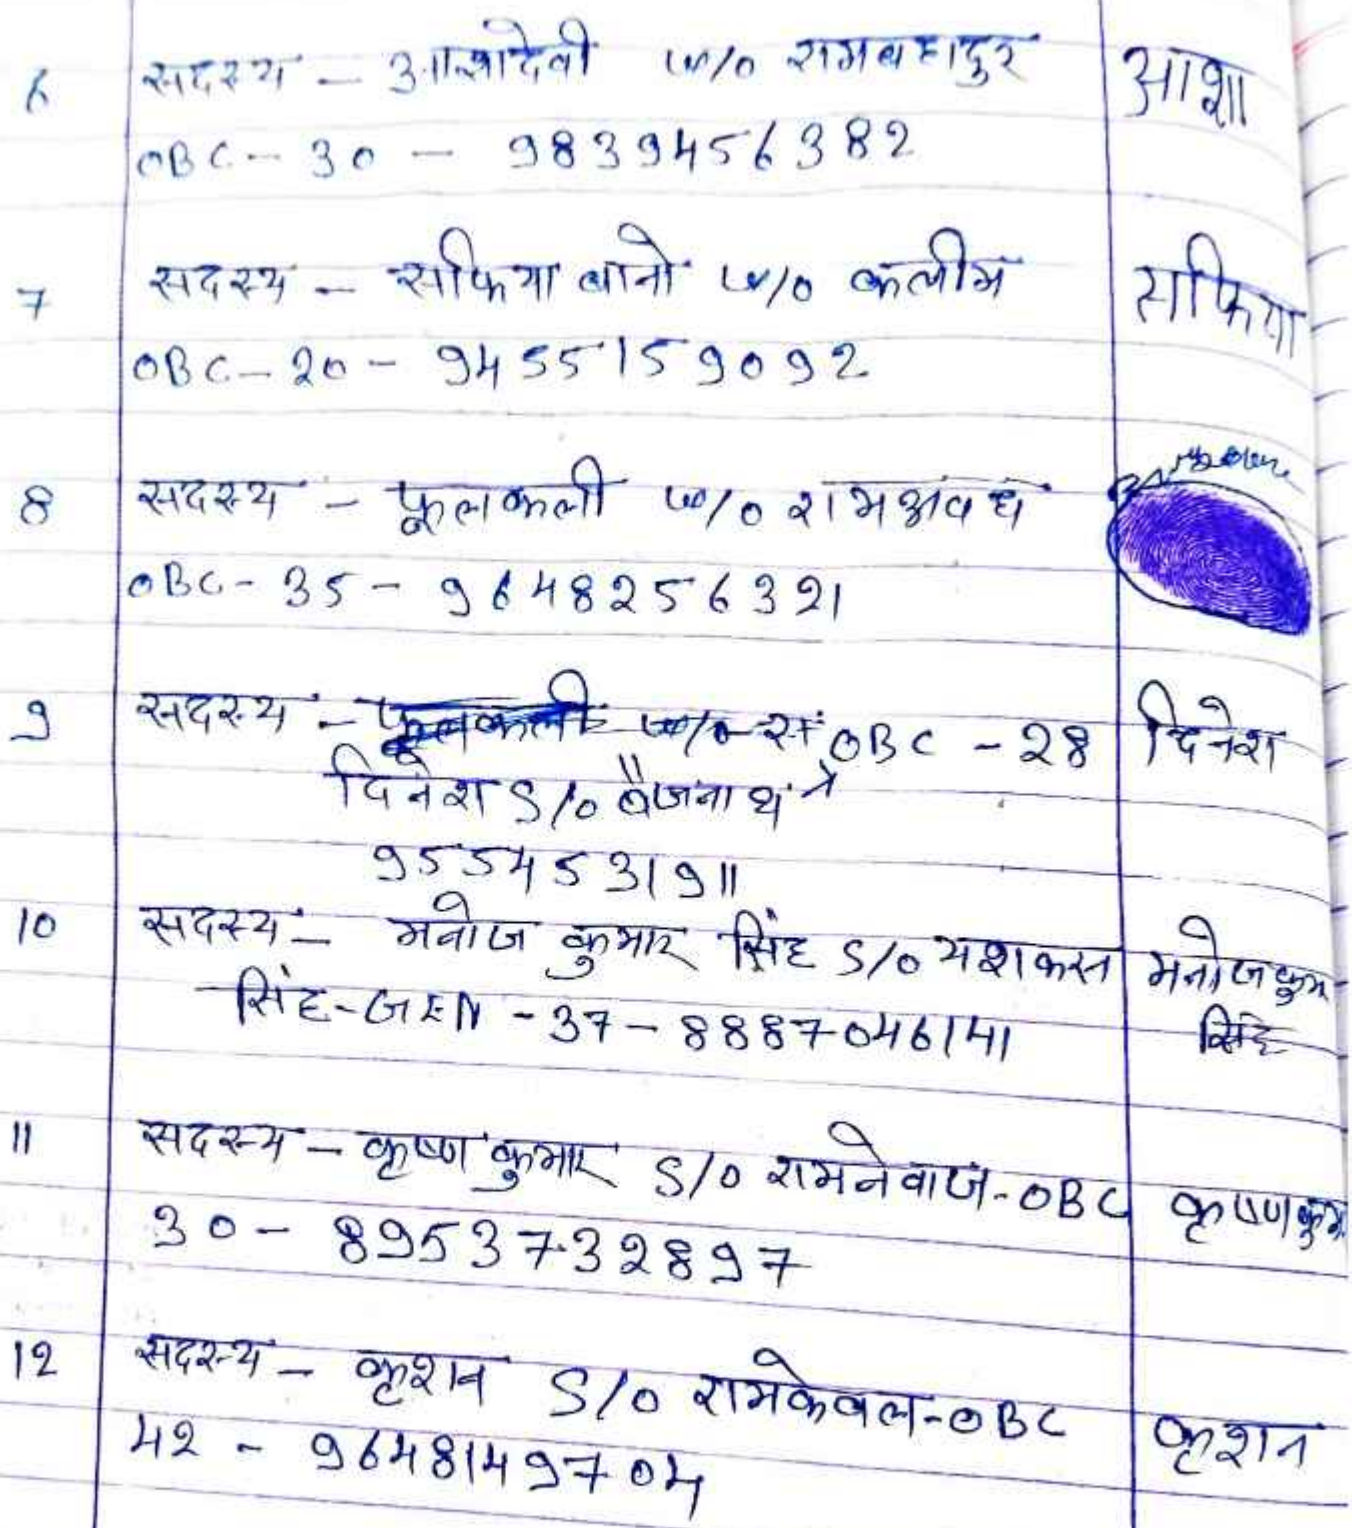 6 सदस्य - आशादेवी w/o रामबहादुर आशा
OBC - 30 - 9839456382
7 सदस्य - सफिया बानो w/o कलीम सफिया
OBC - 20 - 9455159092
8 सदस्य - फूलकली w/o रामअवध
OBC - 35 - 9648256321
9 सदस्य - फूलकली w/o रा OBC - 28 दिनेश
दिनेश S/o बैजनाथ
9554531911
10 सदस्य - मनोज कुमार सिंह S/o यशकरन मनोज कुमार
सिंह - GEN - 37 - 8887046141 सिंह
11 सदस्य - कृष्ण कुमार S/o रामनेवाज - OBC कृष्ण कुमा
30 - 8953732897
12 सदस्य - कृशन S/o रामकेवल - OBC
42 - 9648149704 कृशन